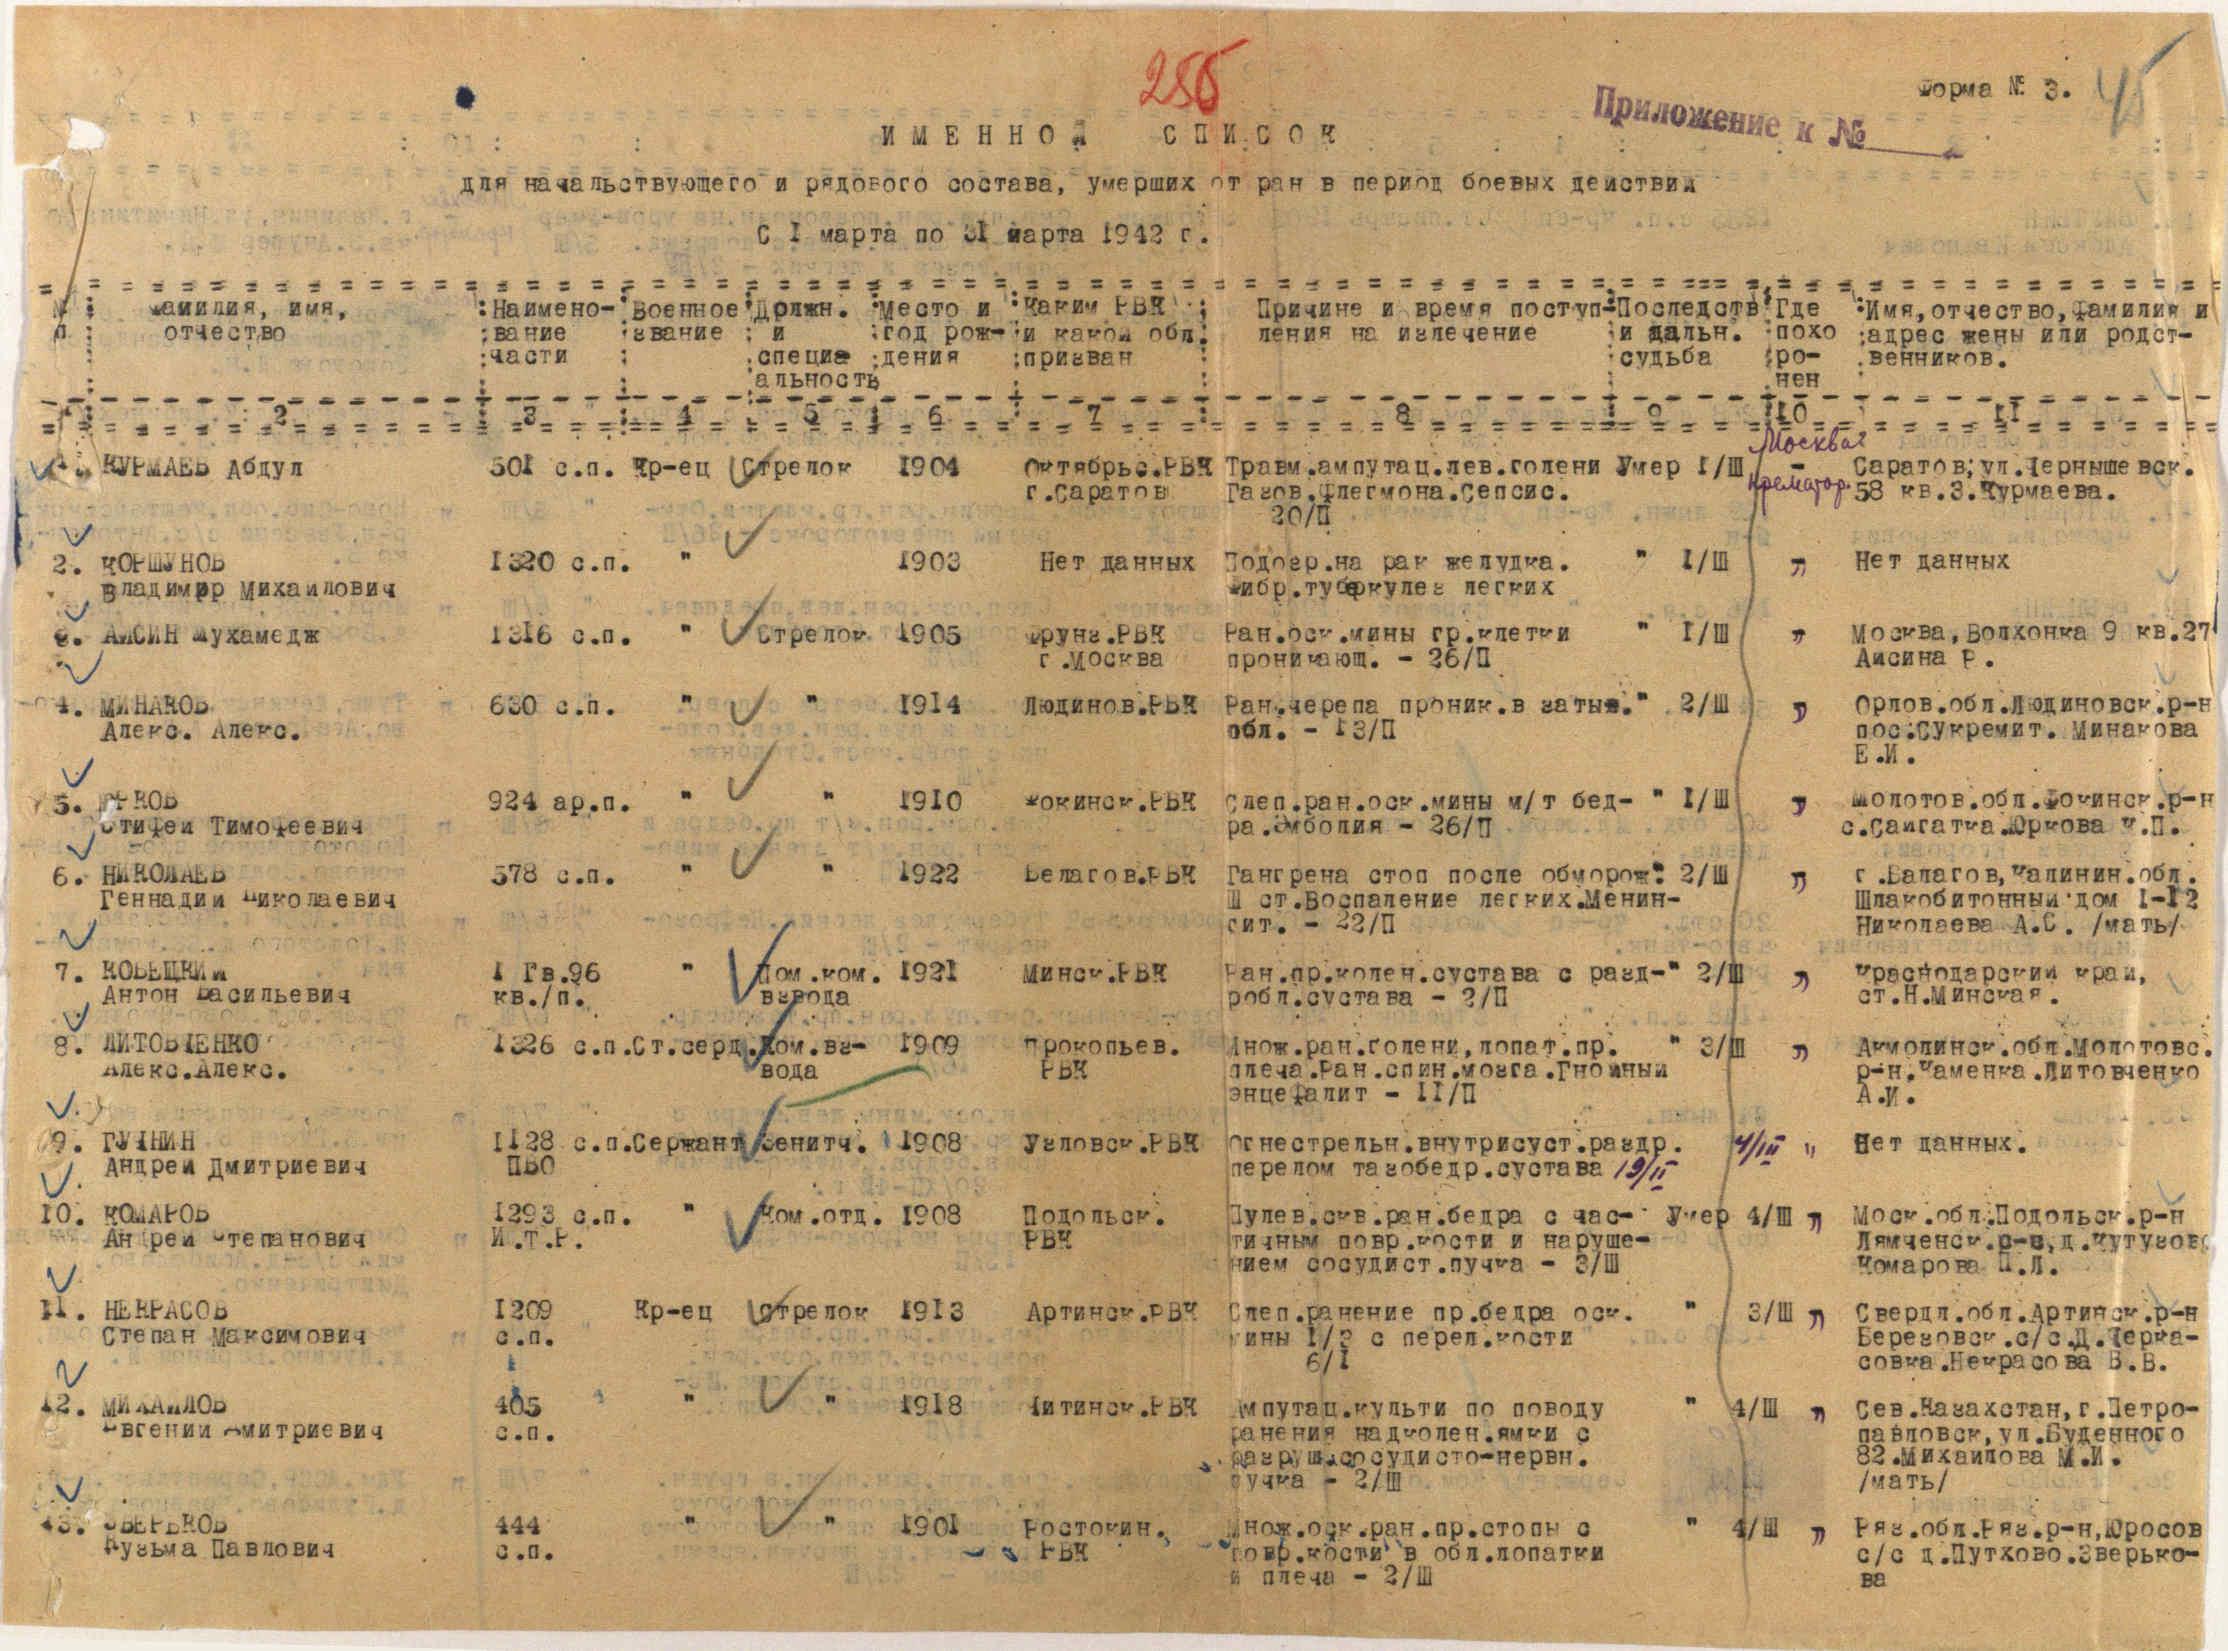 256
Форма № 3.
45
Приложение к №
ИМЕННОЙ СПИСОК
для начальствующего и рядового состава, умерших от ран в период боевых действий
С I марта по 31 марта 1942 г.
№ п : Фамилия, имя, отчество : Наименование части : Военное звание : Должн. и специальность : Место и год рождения : Каким РВК и какой обл. призван : Причине и время поступления на излечение : Последств и дальн. судьба : Где похоронен : Имя, отчество, фамилия и адрес жены или родственников.
1 2 3 4 5 6 7 8 9 10 11
Москва
1. КУРМАЕВ Абдул 501 с.п. Кр-ец Стрелок 1904 Октябрьс.РВК Травм.ампутац.лев.голени Умер I/Ш - Саратов, ул.Чернышевск.
г.Саратов Газов.Флегмона.Сепсис. Крематор. 58 кв.3.Курмаева.
20/П
2. КОРШУНОВ 1320 с.п. " 1903 Нет данных Подозр.на рак желудка. " I/Ш " Нет данных
Владимир Михайлович Фибр.туберкулез легких
3. АИСИН Мухамедж 1316 с.п. " Стрелок 1905 Фрунз.РВК Ран.оск.мины гр.клетки " I/Ш " Москва, Волхонка 9 кв.27
г.Москва проникающ. - 26/П Аисина Р.
4. МИНАКОВ 630 с.п. " " 1914 Людинов.РВК Ран.черепа проник.в затыл." 2/Ш " Орлов.обл.Людиновск.р-н
Алекс. Алекс. обл. - I3/П пос.Сукремит. Минакова
Е.И.
5. ЮРКОВ 924 ар.п. " " 1910 Фокинск.РВК Слеп.ран.оск.мины м/т бед- " I/Ш " Молотов.обл.Фокинск.р-н
Тимофеевич ра.Эмболия - 26/П с.Сайгатка.Юркова К.П.
6. НИКОЛАЕВ 578 с.п. " " 1922 Белагов.РВК Гангрена стоп после обморож. " 2/Ш " г.Валагов, Калинин.обл.
Геннадий Николаевич Ш ст.Воспаление легких.Менин- Шлакобитонный дом I-I2
гит. - 22/П Николаева А.С. /мать/
7. КОБЕЦКИЙ I Гв.96 " Пом.ком. 1921 Минск.РВК Ран.пр.колен.сустава с разд-" 2/Ш " Краснодарский край,
Антон Васильевич кв./п. взвода робл.сустава - 2/П ст.Н.Минская.
8. ЛИТОВЧЕНКО 1326 с.п. Ст.серд. Ком.вз- 1909 Прокопьев. Множ.ран.голени, лопат.пр. " 3/Ш " Акмолинск.обл.Молотовс.
Алекс.Алекс. вода РВК плеча.Ран.спин.мозга.Гнойный р-н.Каменка.Литовченко
энцефалит - II/П А.И.
9. ГУЧНИН 1128 с.п. Сержант Зенитч. 1908 Угловск.РВК Огнестрельн.внутрисуст.раздр. 4/III " Нет данных.
Андрей Дмитриевич ПВО перелом тазобедр.сустава 19/II
10. КОМАРОВ 1293 с.п. " Ком.отд. 1908 Подольск. Пулев.скв.ран.бедра с час- Умер 4/Ш " Моск.обл.Подольск.р-н
Андрей Степанович И.Т.Р. РВК тичным повр.кости и наруше- Лямченск.с-в, д.Кутузово
нием сосудист.пучка - 3/Ш Комарова П.Л.
11. НЕКРАСОВ 1209 Кр-ец Стрелок 1913 Артинск.РВК Слеп.ранение пр.бедра оск. " 3/Ш " Свердл.обл.Артинск.р-н
Степан Максимович с.п. мины I/3 с перел.кости Березовск.с/с.Д.Черка-
6/I совка.Некрасова В.В.
12. МИХАЙЛОВ 405 " " 1918 Читинск.РВК Ампутац.культи по поводу " 4/Ш " Сев.Казахстан, г.Петро-
Евгений Дмитриевич с.п. ранения надколен.ямки с павловск, ул.Буденного
разруш.сосудисто-нервн. 82.Михайлова М.И.
пучка - 2/Ш /мать/
13. ЗВЕРЬКОВ 444 " " 1901 Ростокин. Множ.оск.ран.пр.стопы с " 4/Ш " Ряз.обл.Ряз.р-н, Юросов
Кузьма Павлович с.п. РВК повр.кости в обл.лопатки с/с д.Путхово.Зверько-
и плеча - 2/Ш ва